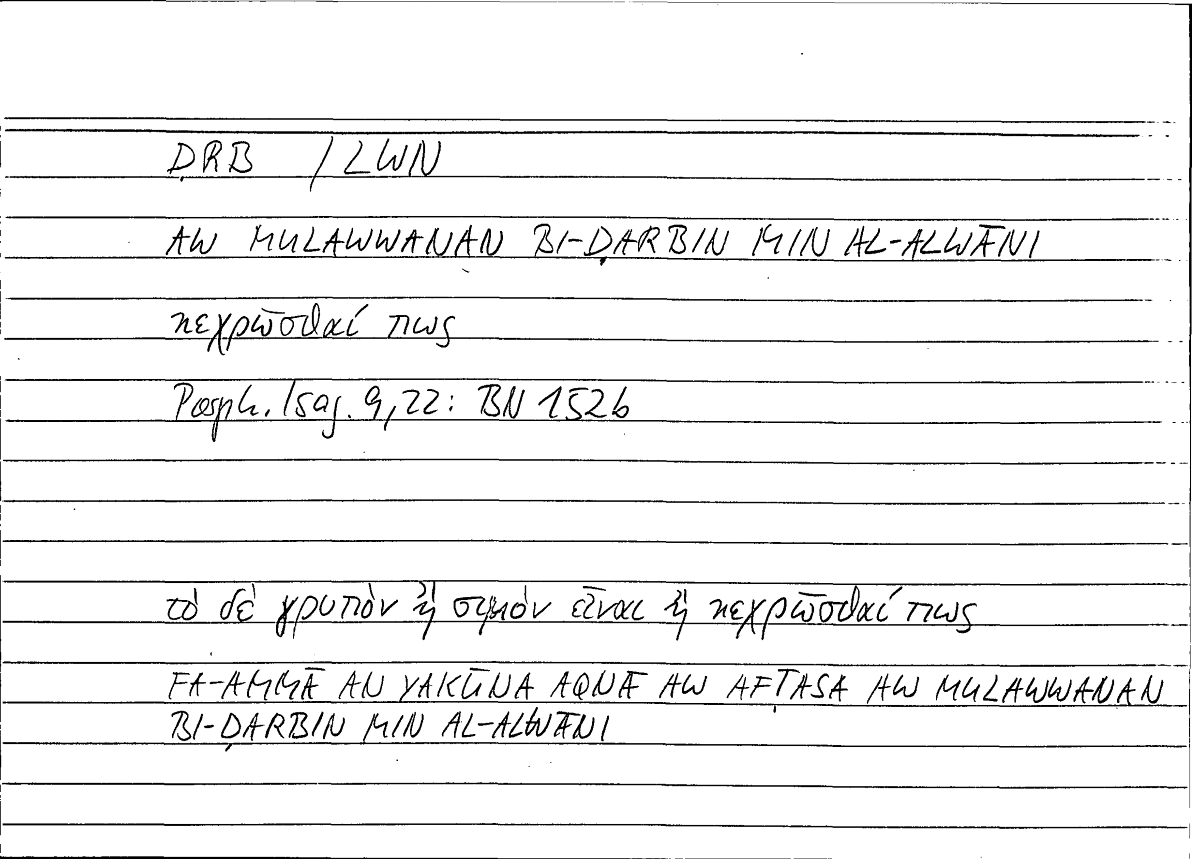 ḌRB / LWN
AW MULAWWANAN BI-ḌARBIN MIN AL-ALWĀNI
κεχρῶσθαί πως
Porph. Isag. 9,22: BN 152b
τὸ δὲ γρυπὸν ἢ σιμὸν εἶναι ἢ κεχρῶσθαί πως
FA-AMMĀ AN YAKŪNA AQNĀ AW AFṬASA AW MULAWWANAN
BI-ḌARBIN MIN AL-ALWĀNI